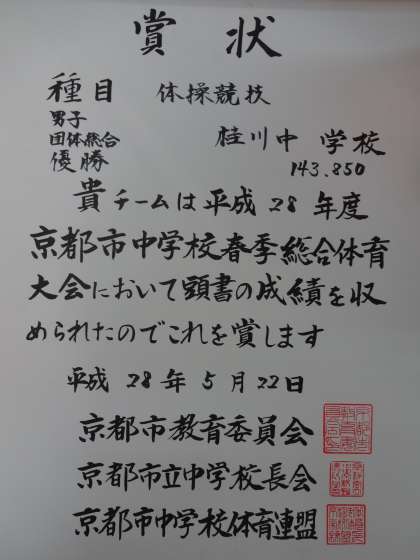 賞状
種目 体操競技
男子
団体総合
優勝
桂川中学校
143.850
貴チームは平成28年度
京都市中学校春季総合体育
大会において頭書の成績を収
められたのでこれを賞します
平成28年5月22日
京都市教育委員会
京都市立中学校長会
京都市中学校体育連盟